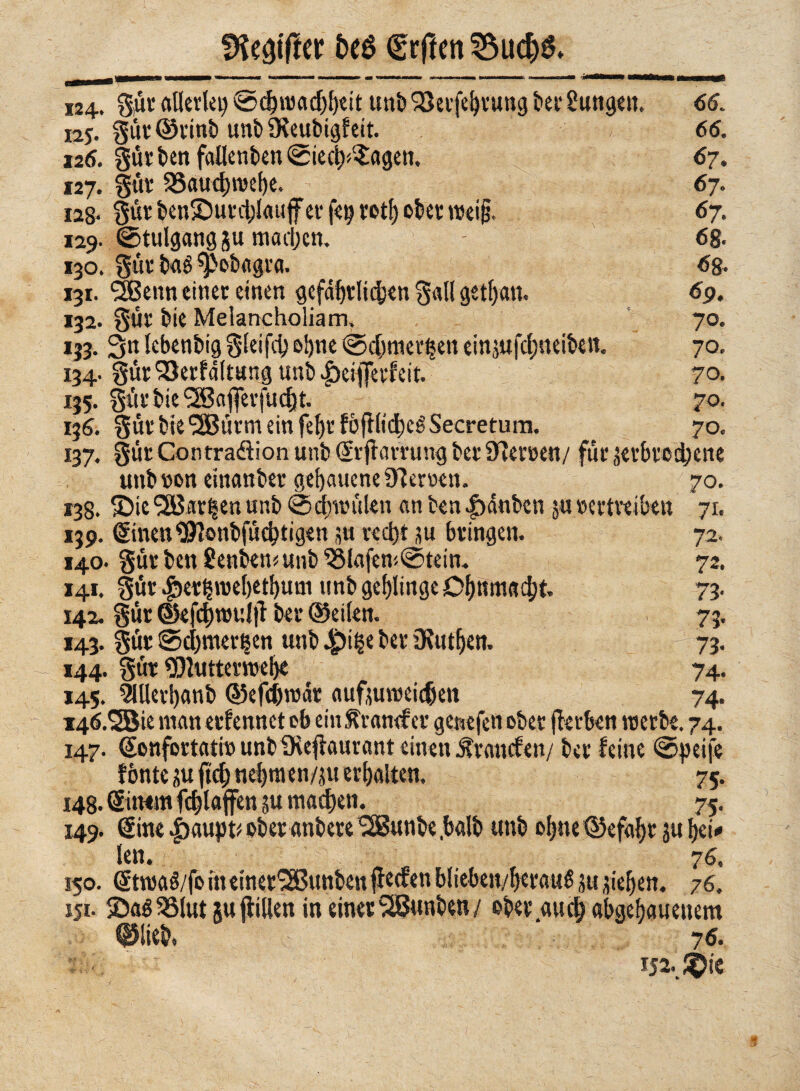 Register des Ersten Buchs.
124. Für allerley Schwachheit und Versehrung der Lungen. 66.
125. Für Grind und Reudigkeit. 66.
126. Für den fallenden Siech-Tagen. 67.
127. Für Bauchwehe. 67.
128. Für den Durchlauff er sey roth oder weiß. 67.
129. Stulgang zu machen. 68.
130. Für das Podagra. 68.
131. Wenn einer einen gefährlichen Fall gethan. 69.
132. Für die Melancholiam. 70.
133. In lebendig Fleisch ohne Schmertzen einzuschneiden. 70.
134. Für Verkältung und Heisserkeit. 70.
135. Für die Wassersucht. 70.
136. Für die Würm ein sehr köstliches Secretum. 70.
137. Für Contraction und Erstarrung der Nerven/ für zerbrochene
und von einander gehauene Nerven. 70.
138. Die Wartzen und Schwülen an den Händen zu vertreiben 71.
139. Einen Mondsüchtigen zu recht zu bringen. 72.
140. Für den Lenden- und Blasen-Stein. 72.
141. Für Hertzwehethum und gehlinge Ohnmacht. 73.
142. Für Geschwulst der Geilen. 73.
143. Für Schmertzen und Hitze der Ruthen. 73.
144. Für Mutterwehe 74.
145. Allerhand Geschwär aufzuweichen 74.
146. Wie man erkennet ob ein Krancker genesen oder sterben werde. 74.
147. Confortativ und Restaurant einen Krancken/ der keine Speise
könte zu sich nehmen/zu erhalten. 75.
148. Einem schlaffen zu machen. 75.
149. Eine Haupt- oder andere Wunde bald und ohne Gefahr zu hei-
len. 76.
150. Etwas/so in einer Wunden stecken blieben/heraus zu ziehen. 76.
151. Das Blut zu stillen in einer Wunden/ oder auch abgehauenem
Glied. 76.
152. Die